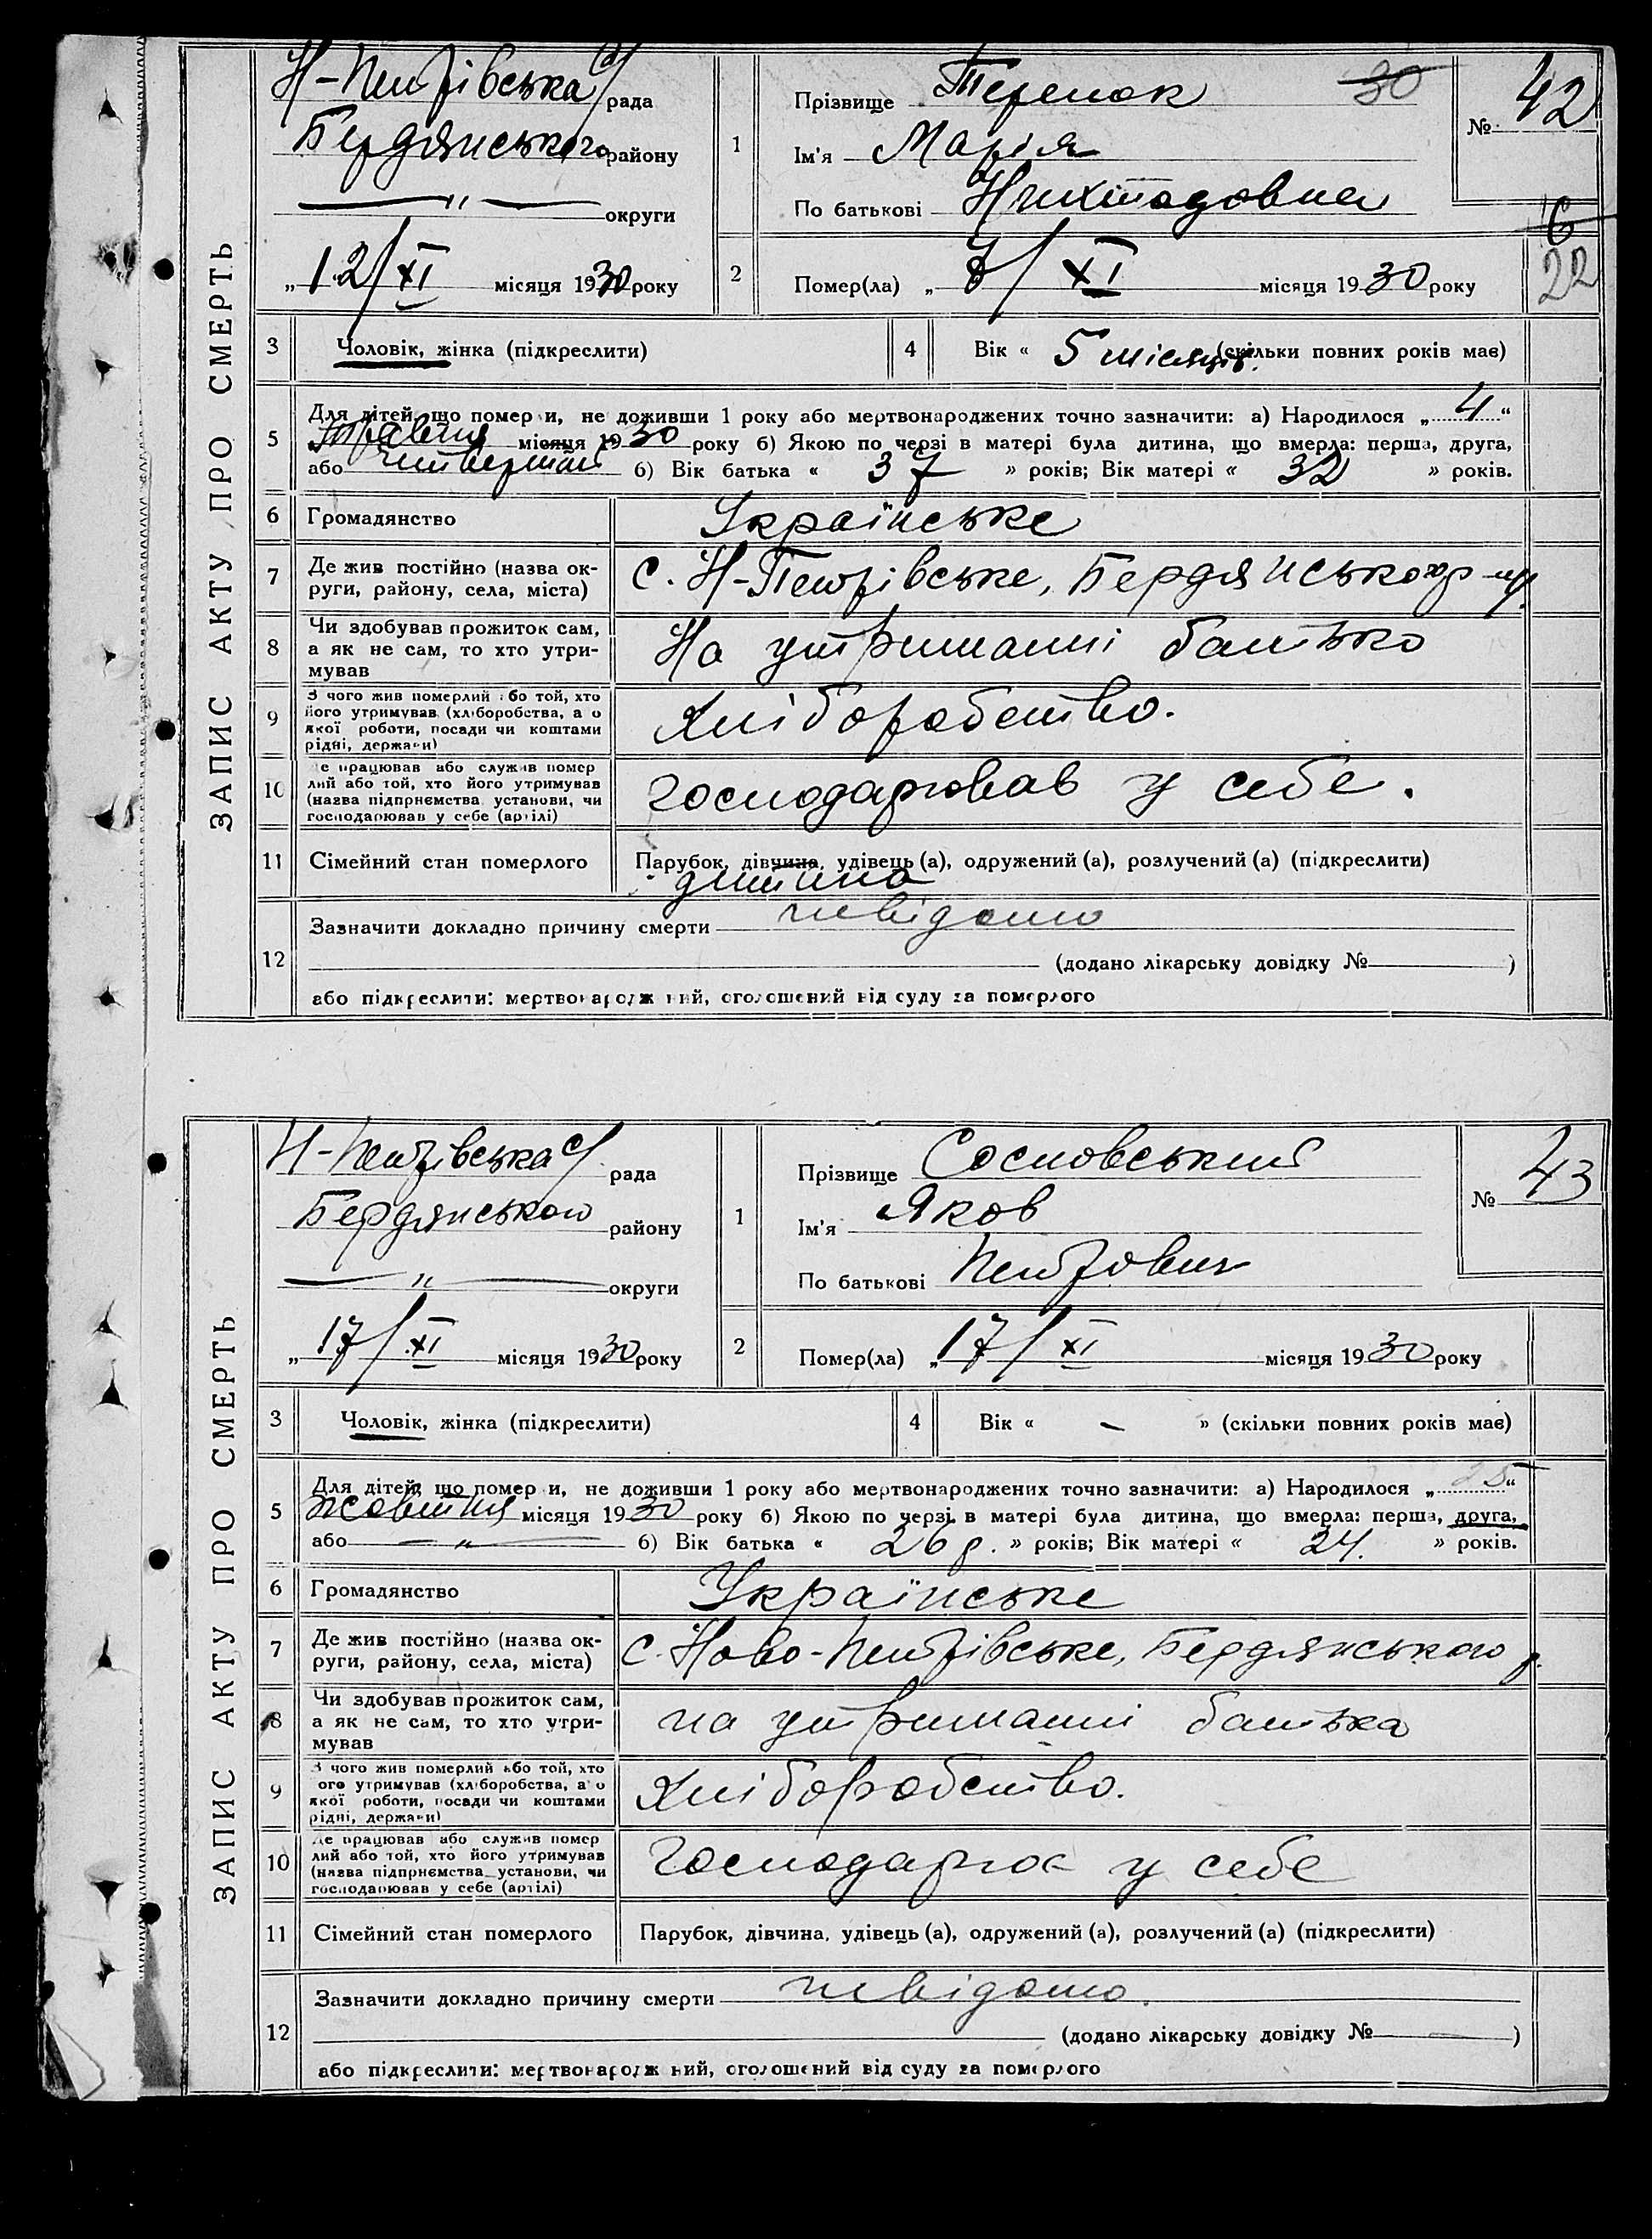 ЗАПИС АКТУ ПРО СМЕРТЬ
Н-Петрівська с/рада
Бердянського району
—— " —— округи
„ 12/XI місяця 1930 року
1
Прізвище Теренок 30
Ім'я Марія
По батькові
№ 42
6
22
2
Помер(ла) „ 8/XI місяця 1930 року
3 Чоловік, жінка (підкреслити)
4 Вік « 5 місяців. (скільки повних років має)
5 Для дітей, що помер и, не доживши 1 року або мертвонароджених точно зазначити: а) Народилося „ 4 “
травня місяця 1930 року б) Якою по черзі в матері була дитина, що вмерла: перша, друга,
або четвертая б) Вік батька « 37 » років; Вік матері « 32 » років.
6 Громадянство Українське
7 Де жив постійно (назва ок-
руги, району, села, міста)
с. Н-Петрівське, Бердянського р-ну.
8 Чи здобував прожиток сам,
а як не сам, то хто утри-
мував
На утриманні батько
9 З чого жив померлий або той, хто
його утримував (хліборобства, а о
якої роботи, посади чи коштами
рідні, держави)
Хліборобство.
10 Де працював або служив помер
лий або той, хто його утримував
(назва підприємства установи, чи
господарював у себе (артілі)
господарював у себе.
11 Сімейний стан померлого Парубок, дівчина, удівець (а), одружений (а), розлучений (а) (підкреслити)
дитина
12 Зазначити докладно причину смерти невідомо
(додано лікарську довідку № )
або підкреслити: мертвонародж ний, оголошений від суду за померлого
ЗАПИС АКТУ ПРО СМЕРТЬ
Н-Петрівська с/рада
Бердянського району
—— " —— округи
„ 17/XI місяця 1930 року
1
Прізвище Сосновський
Ім'я Яков
По батькові Петрович
№ 43
2
Помер(ла) „ 17/XI місяця 1930 року
3 Чоловік, жінка (підкреслити)
4 Вік « – » (скільки повних років має)
5 Для дітей, що помер и, не доживши 1 року або мертвонароджених точно зазначити: а) Народилося „ 25 “
жовтня місяця 1930 року б) Якою по черзі в матері була дитина, що вмерла: перша, друга,
або — " — б) Вік батька « 26 р. » років; Вік матері « 24. » років.
6 Громадянство Українське
7 Де жив постійно (назва ок-
руги, району, села, міста)
С. Ново-Петрівське, Бердянського р.
8 Чи здобував прожиток сам,
а як не сам, то хто утри-
мував
на утриманні батька
9 З чого жив померлий або той, хто
ого утримував (хліборобства, а о
якої роботи, посади чи коштами
рідні, держави)
Хліборобство.
10 Де працював або служив помер
лий або той, хто його утримував
(назва підприємства установи, чи
господарював у себе (артілі)
Господарює у себе
11 Сімейний стан померлого Парубок, дівчина, удівець (а), одружений (а), розлучений (а) (підкреслити)
12 Зазначити докладно причину смерти невідомо.
(додано лікарську довідку № — )
або підкреслити: мертвонародж ний, оголошений від суду за померлого